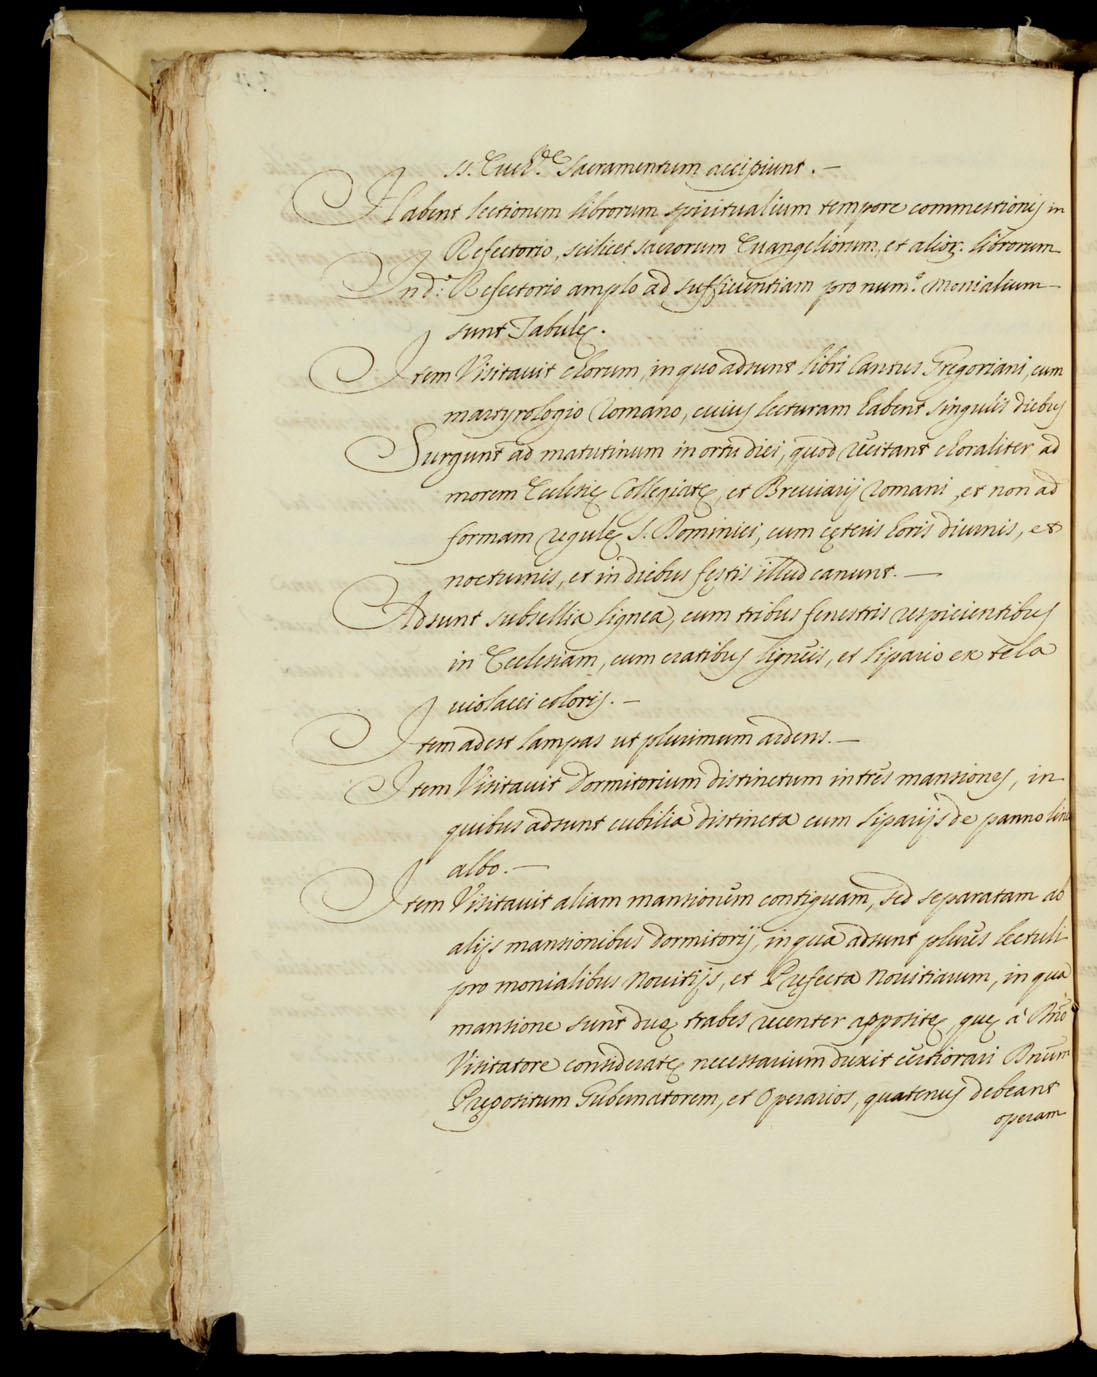 SS. Euch.ᵉ Sacramentum accipiunt. —
Habent lectionem librorum spiritualium tempore commestionis in
Refectorio, scilicet sacrorum Euangeliorum, et alioꝝ. librorum
In d.º Refectorio amplo ad sufficientiam pro num.º Monialium
sunt Tabulę.
Item Visitauit chorum, in quo adsunt libri Cantus Gregoriani, cum
martyrologio Romano, cuius lecturam habent singulis diebus
Surgunt ad matutinum in ortu diei, quod recitant choraliter ad
morem Ecclesię Collegiatę, et Breuiarij Romani, et non ad
formam regulę S. Dominici, cum cęteris horis diurnis, et
nocturnis, et in diebus fęstis illud canunt. —
Adsunt subsellia lignea, cum tribus fenestris respicientibus
in Ecclesiam, cum cratibus ligneis, et sipario ex tela
uiolacei coloris. —
Item adest lampas ut plurimum ardens. —
Item Visitauit Dormitorium distinctum in tres mansiones, in
quibus adsunt cubilia distincta cum siparijs de panno lin
albo. —
Item Visitauit aliam mansionem contiguam, sed separatam ab
alijs mansionibus dormitorij, in qua adsunt plures lectuli
pro monialibus Nouitijs, et Pręfecta Nouitiarum, in qua
mansione sunt duę trabes recenter appositę, quę à Rmo
Visitatore consideratę necessarium duxit certiorari Dnum
Prępositum Gubernatorem, et Operarios, quatenus debeant
operam